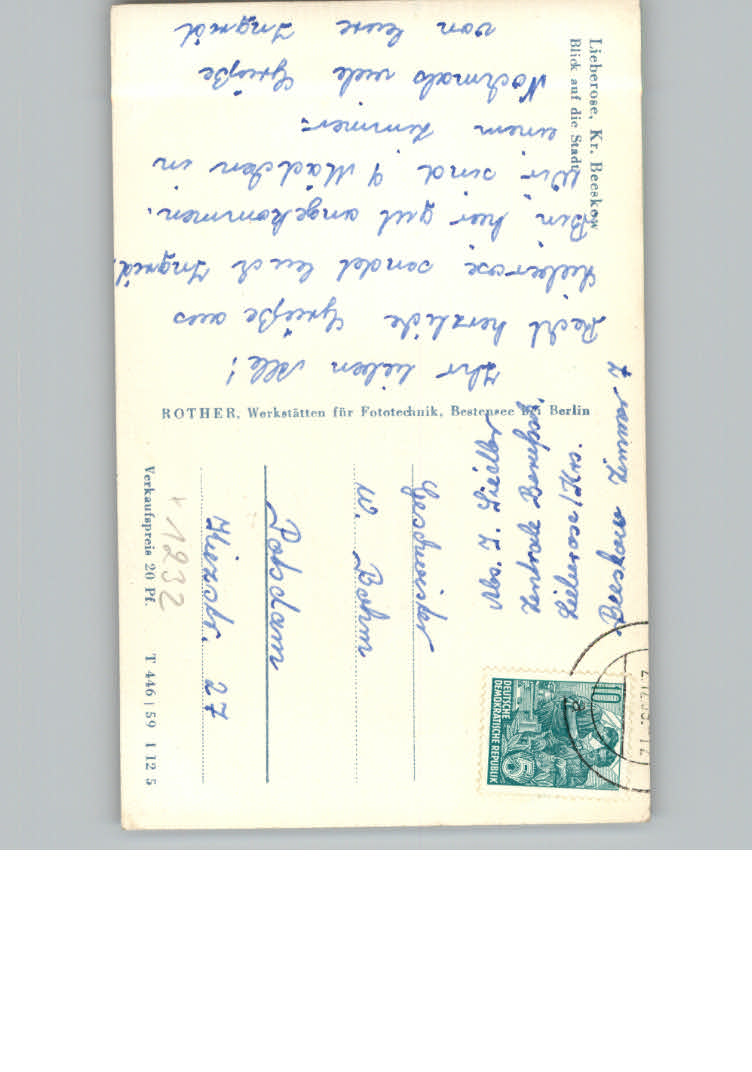 Lieberose, Kr. Beeskow
Blick auf die Stadt
Ihr lieben Alle!
Recht herzliche Grüße aus
Lieberose sendet Euch Ingrid.
Bin hier gut angekommen.
Wir sind 9 Mädchen in
einem Zimmer.
Nochmals viele Grüße
von Eure Ingrid
ROTHER, Werkstätten für Fototechnik, Bestensee bei Berlin
Abs. I.
Lieberose
Beeskow Zimmer 7
Geschwister
W. Böhm
Potsdam
27
DEUTSCHE
DEMOKRATISCHE REPUBLIK
10
1232
Verkaufspreis 20 Pf.
T 446 | 59 I 12 5